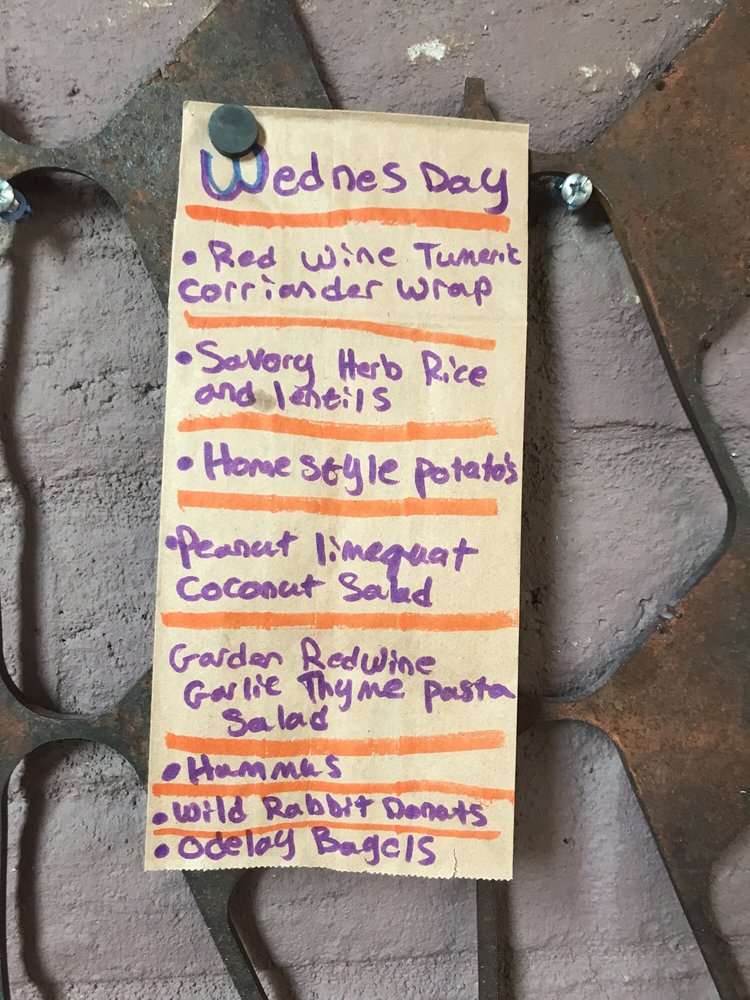 Wednes Day
• Red Wine Tumeric
Corriander Wrap
• Savory Herb Rice
and lentils
• Home style potato's
• Peanut limequat
Coconut Salad
Garden Red Wine
Garlic Thyme pasta
Salad
• Hummus
• Wild Rabbit Donuts
• Odelay Bagels